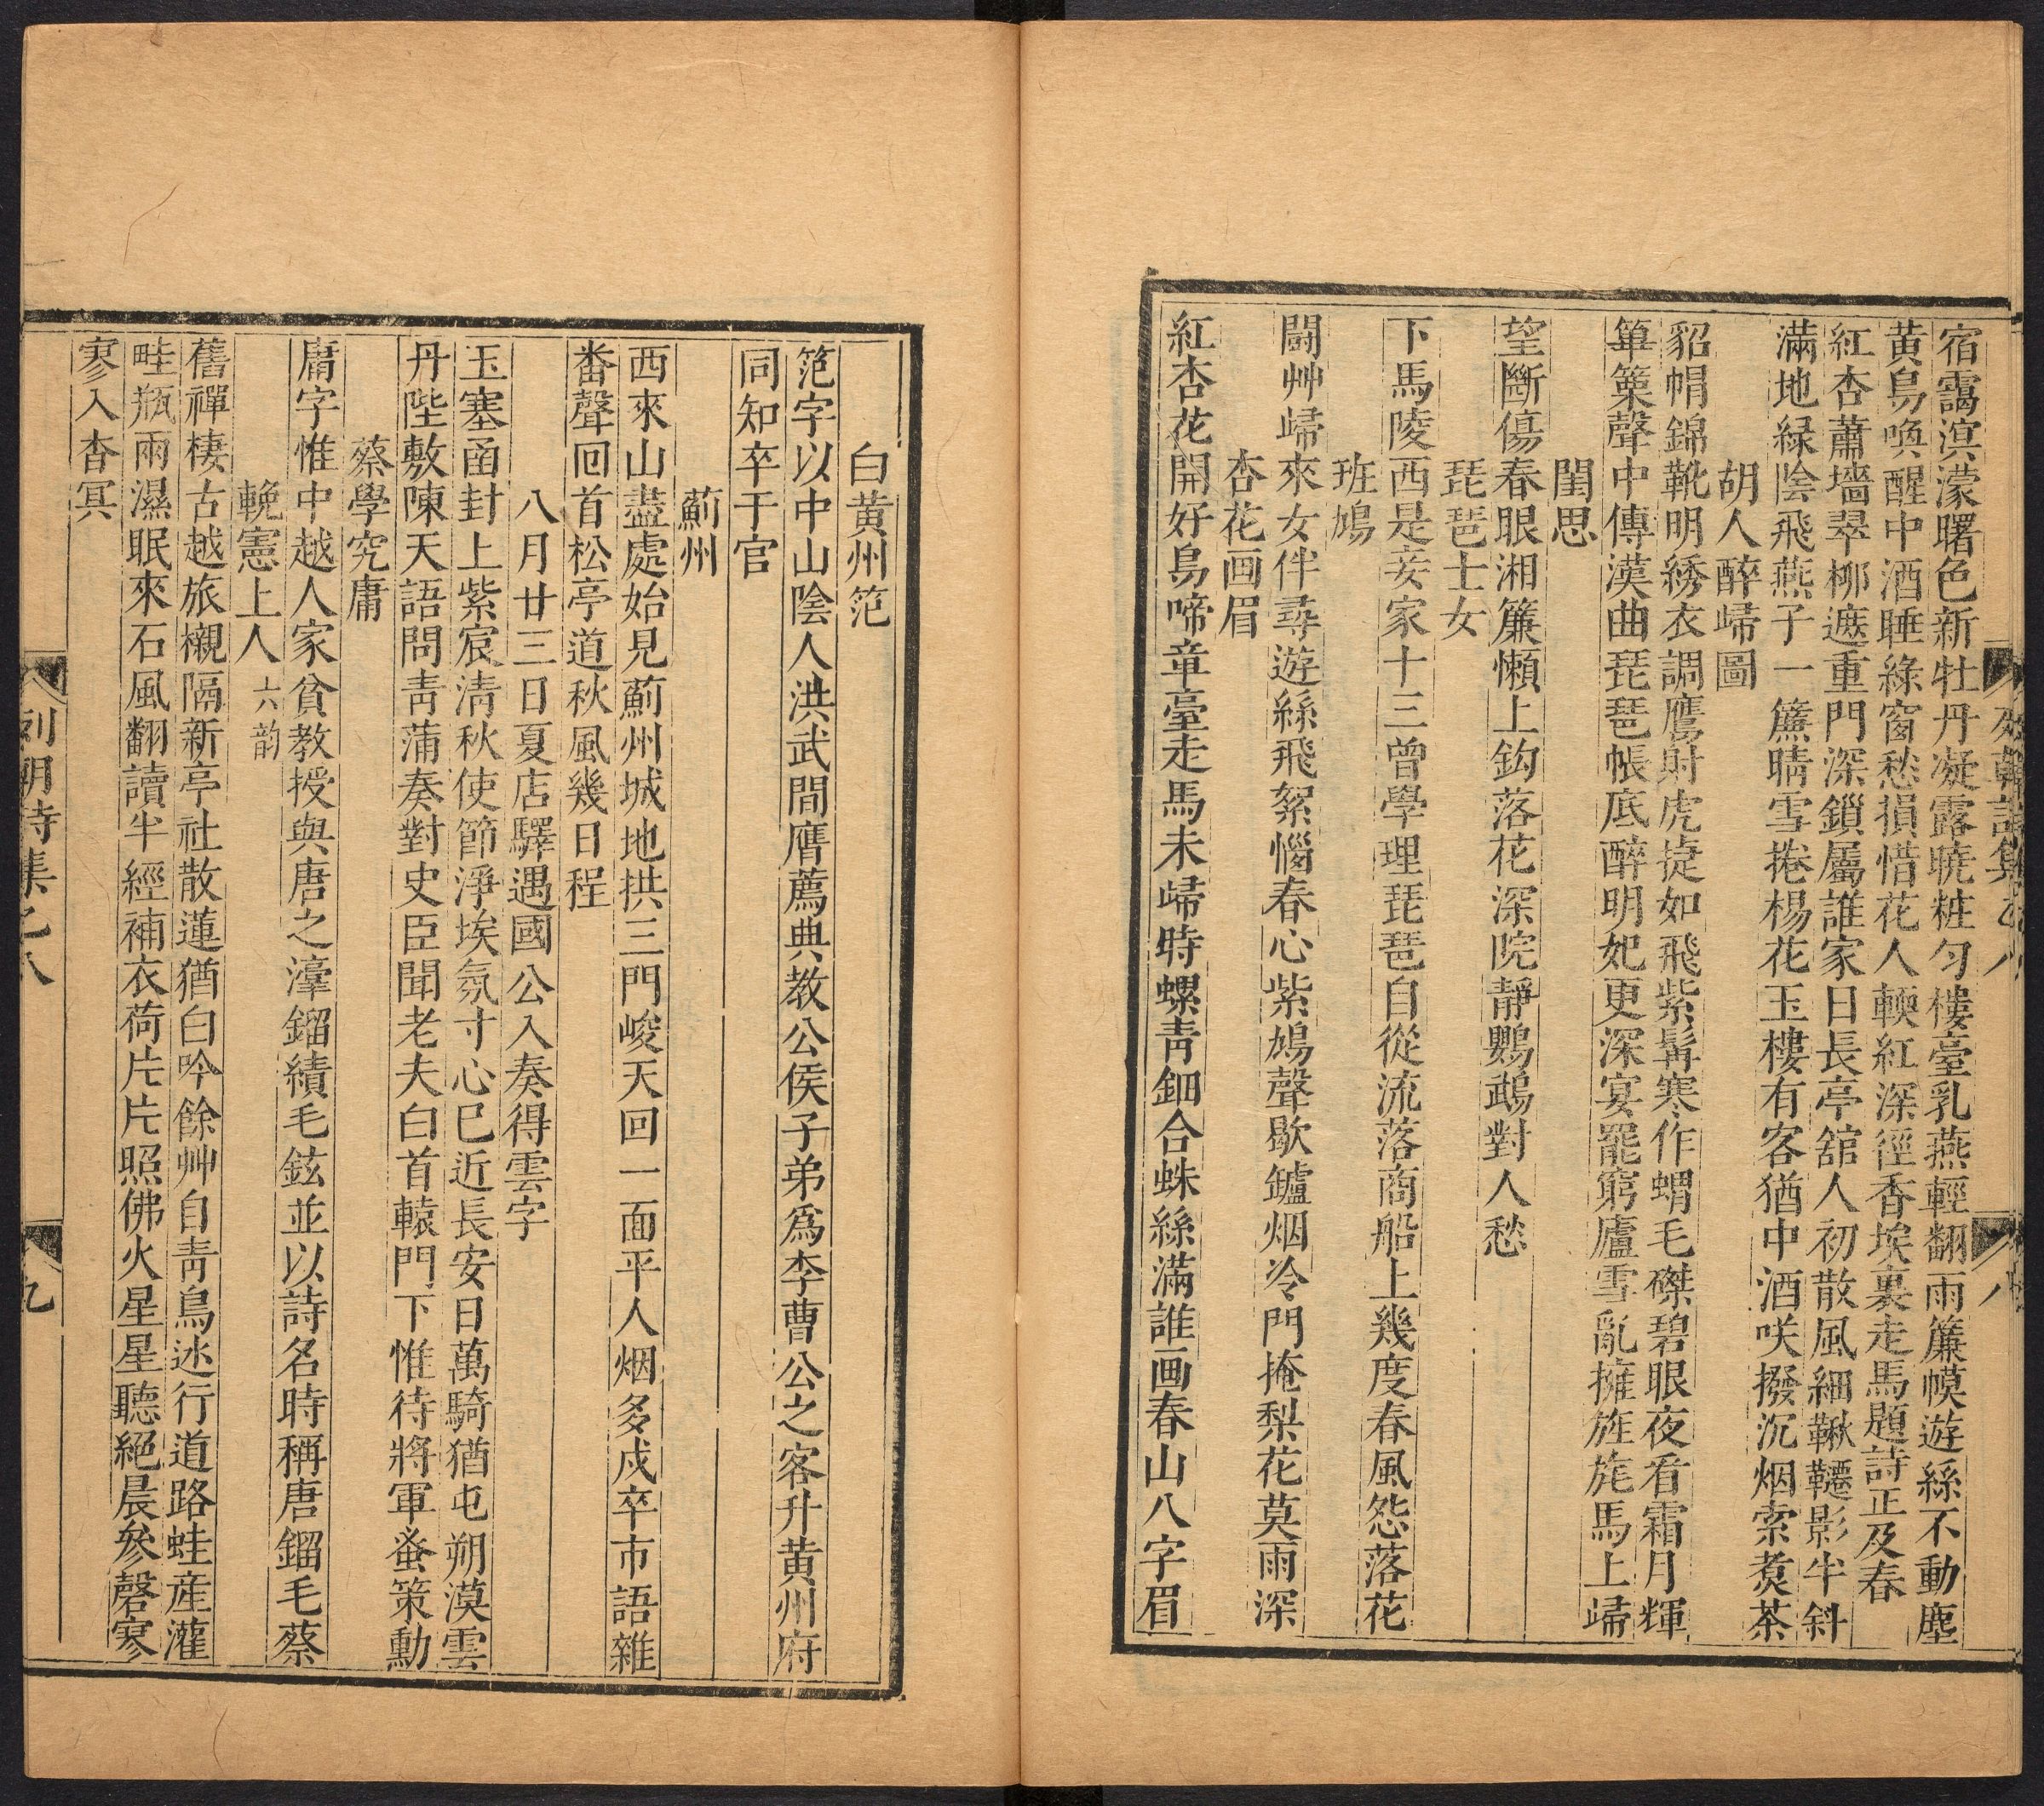 宿靄溟濛曙色新牡丹凝露曉粧匀樓臺乳燕輕翻雨簾幙遊絲不動塵
黄鳥喚醒中酒睡綠窗愁損惜花人輭紅深徑香埃裏走馬題詩正及春
紅杏蕭墻翠柳遮重門深鎖屬誰家日長亭舘人初散風細鞦韆影半斜
滿地緑陰飛燕子一簾晴雪捲楊花玉樓有客猶中酒咲撥沉烟索煑茶
胡人醉歸圖
貂帽錦靴明綉衣調鷹射虎捷如飛紫髯寒作蝟毛磔碧眼夜看霜月輝
篳篥聲中傳漢曲琵琶帳底醉明妃更深宴罷窮廬雪亂擁旌旄馬上歸
閨思
望斷傷春眼湘簾懶上鈎落花深院靜鸚鵡對人愁
琵琶士女
下馬陵西是妾家十三曾學理琵琶自從流落商船上幾度春風怨落花
班鳩
鬪艸歸來女伴尋遊絲飛絮惱春心紫鳩聲歇鑪烟冷門掩梨花莫雨深
杏花画眉
紅杏花開好鳥啼章臺走馬未歸時螺靑鈿合蛛絲滿誰画春山八字眉
八
白黄州范
范字以中山陰人洪武間膺薦典教公侯子弟爲李曹公之客升黄州府
同知卒于官
薊州
西來山盡處始見薊州城地拱三門峻天回一面平人烟多戍卒市語雜
番聲回首松亭道秋風幾日程
八月廿三日夏店驛遇國公入奏得雲字
玉塞函封上紫宸清秋使節淨埃氛寸心已近長安日萬騎猶屯朔漠雲
丹陛敷陳天語問靑蒲奏對史臣聞老夫白首轅門下惟待將軍蚤策勳
蔡學究庸
庸字惟中越人家貧教授與唐之淳鎦績毛鉉並以詩名時稱唐鎦毛蔡
輓憲上人 六韵
舊禪棲古越旅櫬隔新亭社散蓮猶白吟餘艸自靑鳥迷行道路蛙産灌
畦瓶雨濕眠來石風翻讀半經補衣荷片片照佛火星星聽絕晨參磬寥
寥入杳冥
列朝詩集乙八
九